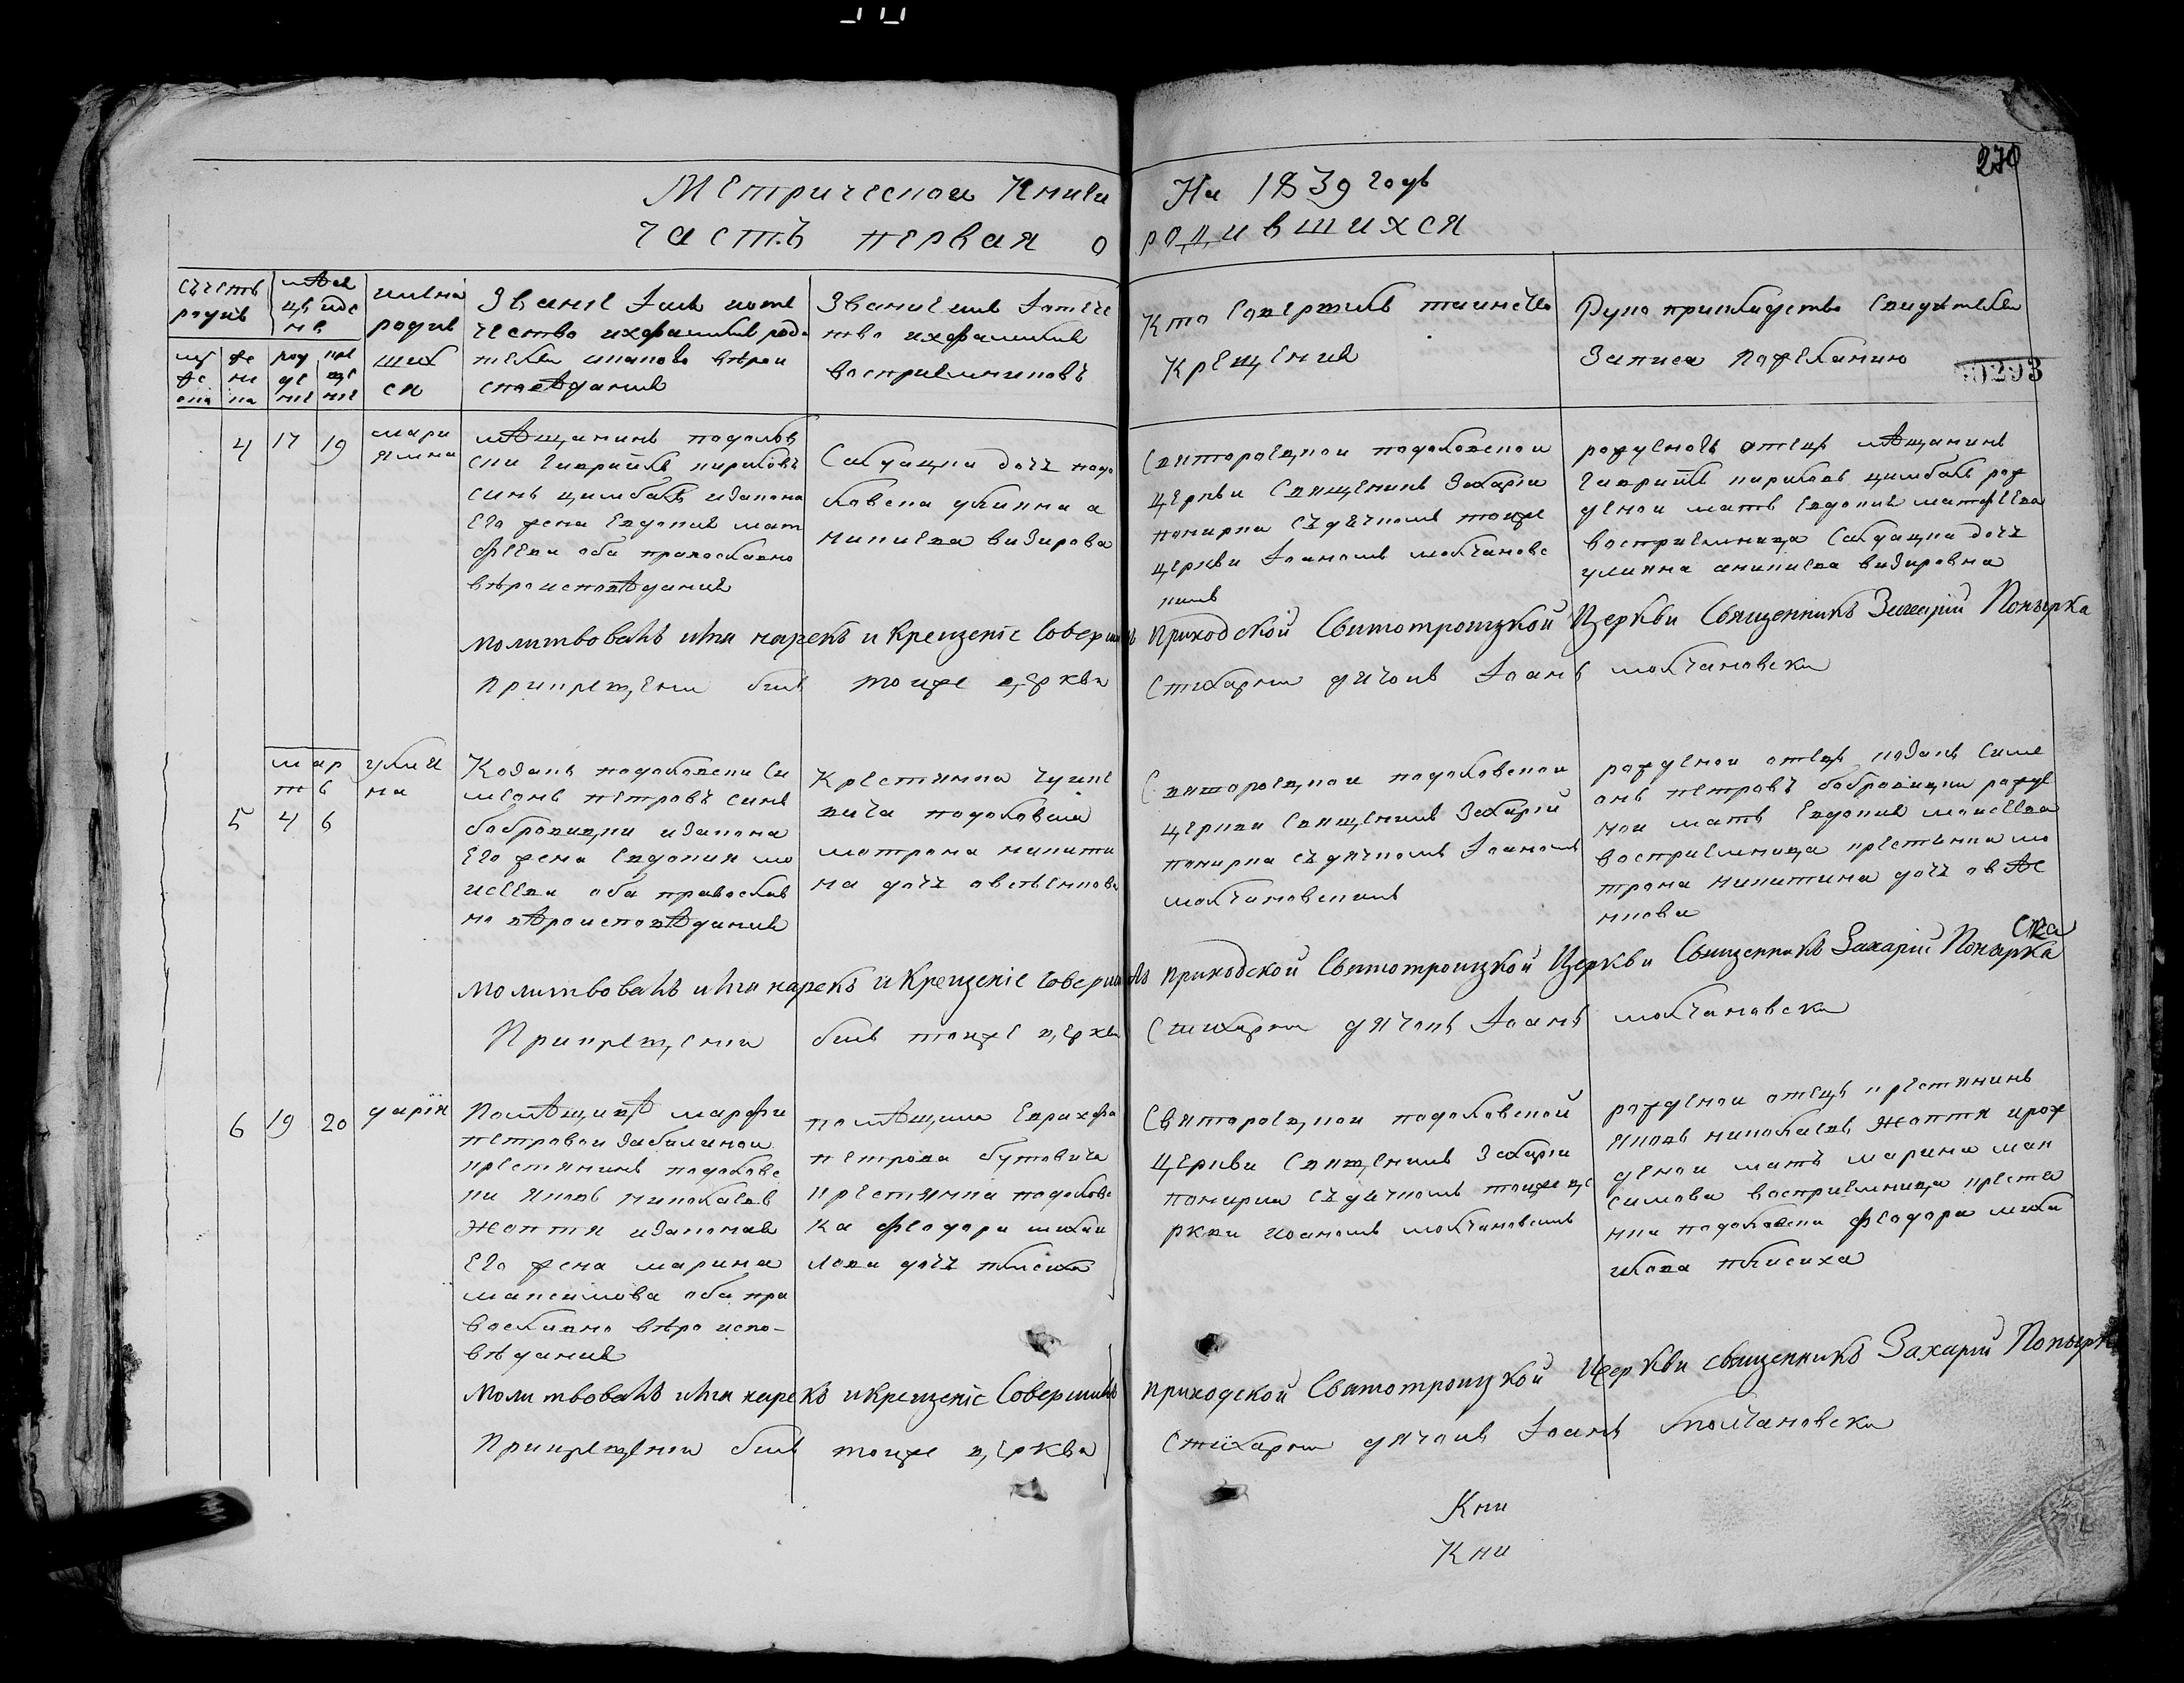 270
Метрической Книги На 1839 годъ
часть первая о родившихся
Счетъ родив
мѣся цъ иде нь
имена родив шихся
Звание Имя иоте чество ихфамилия роди тели икакова вѣрои споведания
Звание имя Iотече тво ихфамилия восприемниковъ
Кто совершилъ таинство Крещения
Руко прикладство свидѣтелей Записа пожеланию
муже ска
же нска
рож дение
кре ще ние
0293
4 17 19
мари ямна
мѣщанинъ подолов
ски гаврийлъ кириловъ
синъ цимбалъ изакона
его жена Евдокия мат
феева оба православно
вѣроисповѣдания
Салдацка дочъ подо
ловска улиянна а
никиева
Святороецкои подоловской
церкви священикъ Захарiи
понирка съдячкомъ тоиже
церкви Iоаномъ молчановс
кимъ
рожденой отецъ мѣщанинъ
гаврийлъ кириловъ цимбалъ рож
деной мать Евдокия матфеева
восприемница Салдацка дочъ
улияна аникиева
Молитвовалъ имя нарекъ и Крещенiе Совершилъ приходской Святотроицкой Церкви Священникъ Захарiй Понырка
Прикрещении билъ тоиже церкви Стихарни дячокъ Iоанъ молчановски
мартъ
5 4 6
улия на
Козакъ подоловски Си
меонъ петровъ синъ
бобровицки изакона
его жена Евдокия мо
исеева оба православ
но вѣроисповѣдания
Крестянка
вича подоловска
мотрона никити
на дочъ
Святороецкои подоловской
церкви священикъ Захарiй
понирка съдячкомъ Iоаномъ
молчановскимъ
рожденой отецъ козакъ Симе
онъ петровъ бобровицки рожде
ной мать Евдокия моисеева
восприемница крестянка мо
трона никитина дочъ
Молитвовалъ имя нарекъ и Крещенiе Совершилъ приходской Святотроицкой Церкви Священникъ Захарiй Понырка
Прикрещении билъ тоиже церкви Стихарни дячокъ Iоанъ молчановски
6 19 20
дарiя
Помѣщицѣ марфи
петровои забилиной
крестянинъ подоловс
ки яковъ николаевъ
жоптя изаконая
его жена марина
максимова оба пра
вославно вѣро испо-
вѣдания
помѣщика
петрова бутовича
крестянка подоловс
ка феодора михаи
лова дочъ плисиха
Святороецкои подоловской
церкви священикъ Захарiи
понирка съдячкомъ тоиже це
ркви иоаномъ молчановскимъ
рожденой отецъ крестянинъ
яковъ николаевъ жоптя ирож
деной мать марина мак
симова восприемница крестя
нка подоловска феодора миха
илова плисиха
Молитвовалъ имя нарекъ икрещенiе Совершилъ приходской Святотроицкой Церкви священникъ Захарiй Понырка
Прикрещении билъ тоиже церкви Стихарни дячокъ Iоанъ Молчановски
Кни
Кни